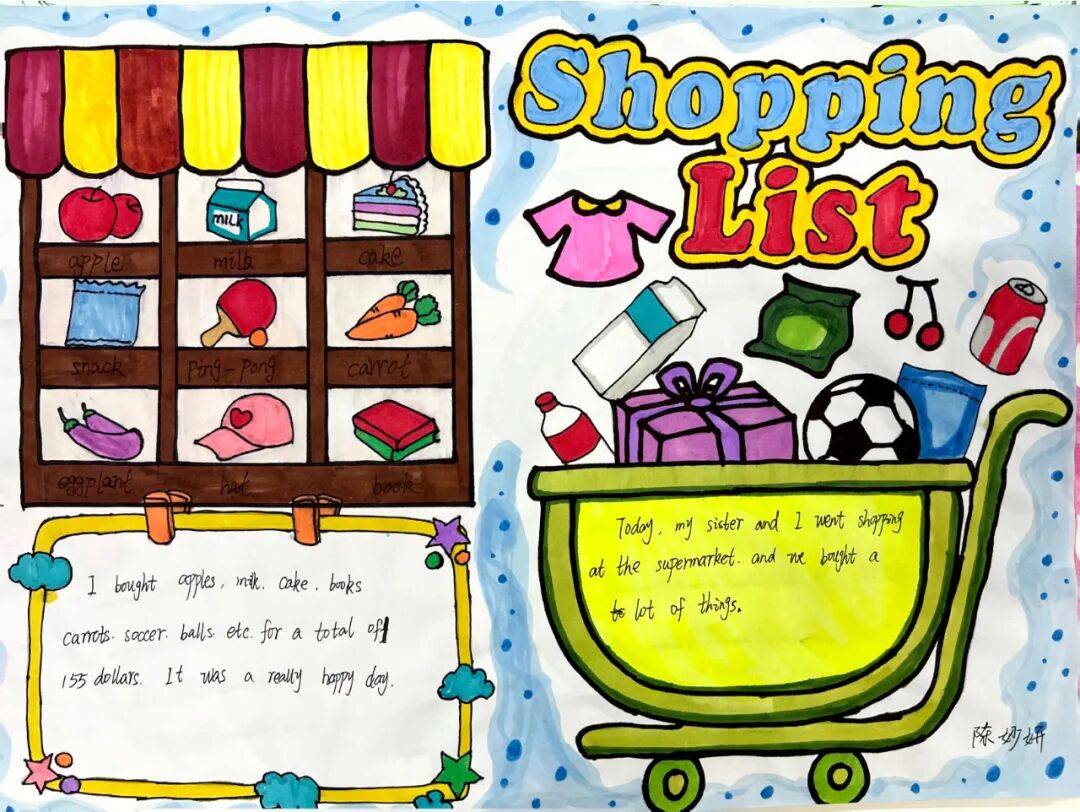 Shopping
List
MILK
apple milk cake
snack ping-pong carrot
eggplant hat book
I bought apples, milk, cake, books
carrots. soccer. balls. etc. for a total of
155 dollars. It was a really happy day.
Today, my sister and I went shopping
at the supermarket. and we bought a
lot of things.
陈妙妍